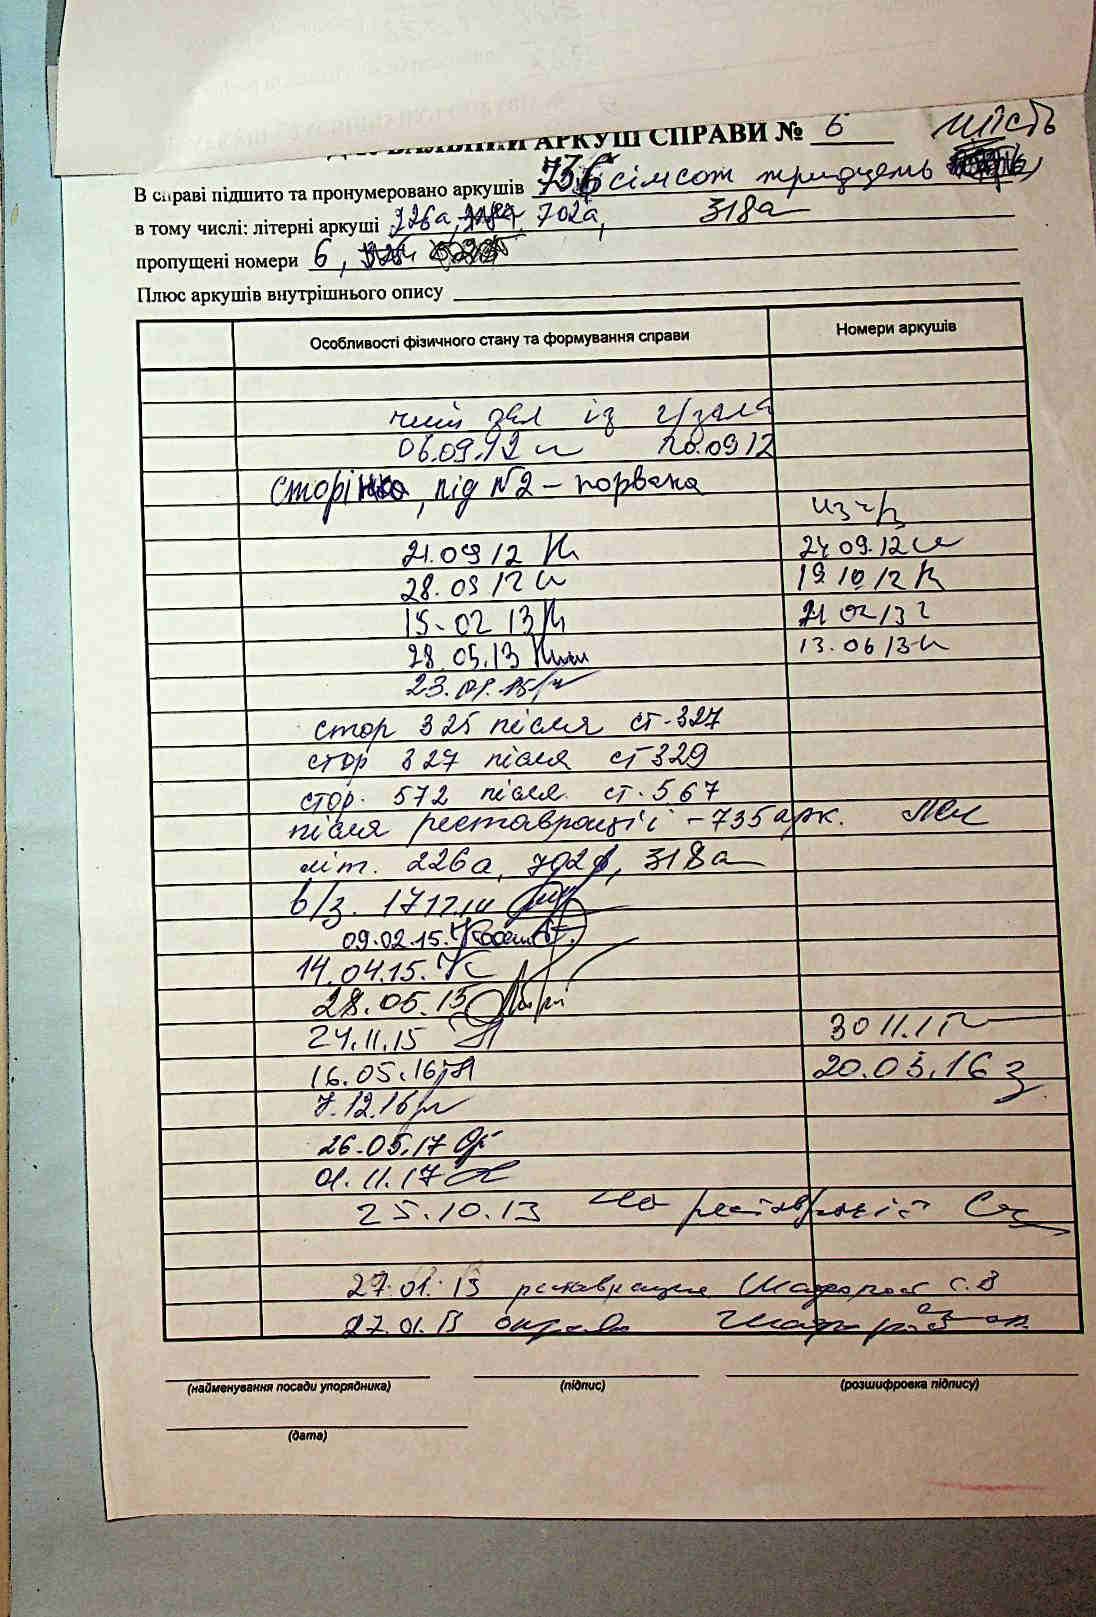 АРКУШ СПРАВИ № 6 шість
В справі підшито та пронумеровано аркушів 736 сімсот тридцять
в тому числі: літерні аркуші 226а, 702а, 318а
пропущені номери 6,
Плюс аркушів внутрішнього опису
Особливості фізичного стану та формування справи Номери аркушів
чит зал із
06.09.12 10.09 12
сторінка, під №2 – порвана
21.09 12 24 09.12
28.09 12 19 10 12
15.02 13 21 02 13
28.05.13 13.06 13
23.01.15
стор 325 після ст. 327
стор 327 після ст 329
стор. 572 після ст. 567
після реставрації – 735 арк.
літ. 226а, 702а, 318а
в/з. 17 12.14
09.02.15.
14.04.15.
28.05.15
24.11.15 30 11.15
16.05.16 20.05.16
7.12.16
26.05.17
01.11.17
25.10.13 на реставрації
27.01.13 реставрация
27.01.13 оправа
(найменування посади упорядника) (підпис) (розшифровка підпису)
(дата)